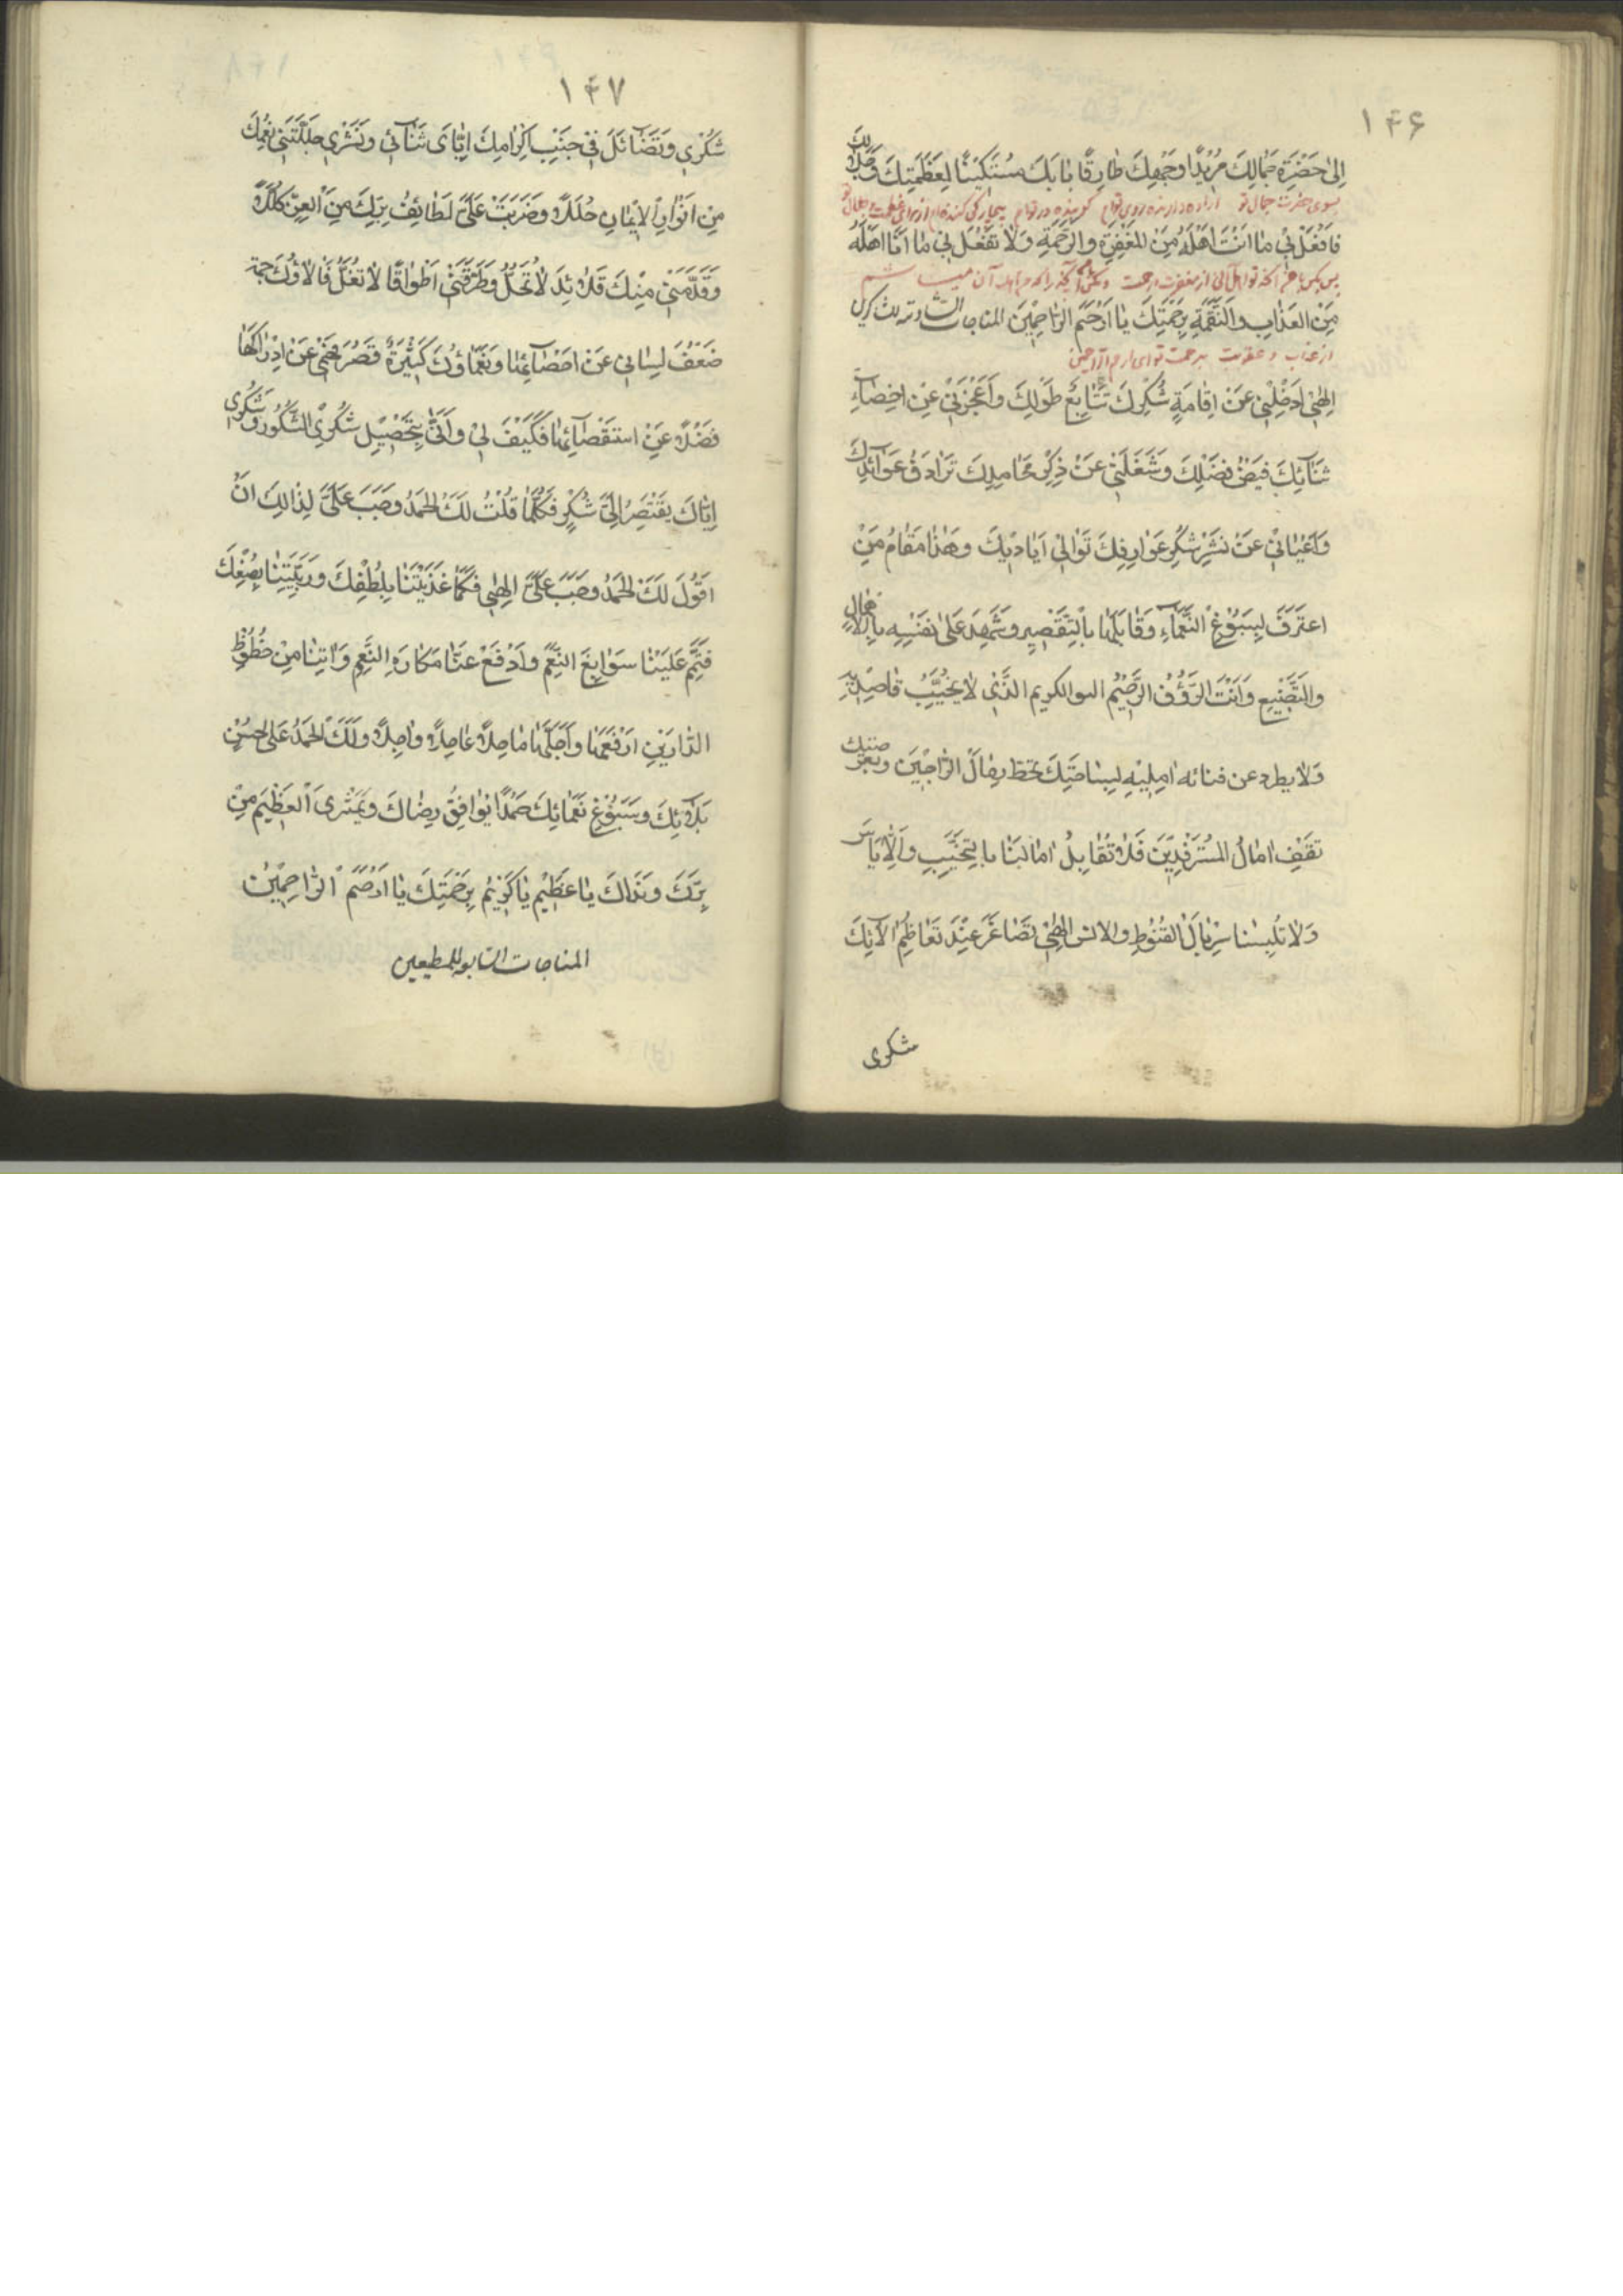 ۱۴۶
اِلىٰ حَضْرَةِ جَمٰالِكَ مُرْيدًا وَجْهِكَ طٰارِقًا بٰابَكَ مُسْتَكٖينًا لِعَظَمَتِكَ وَجَلٰالِكَ
بسوی حضرت جمال تو اراده دارنده روی توام کوبنده در توام
فَافْعَلْ بٖى مٰا اَنْتَ اَهْلُهُ مِنَ الْمَغْفِرَةِ وَالرَّحْمَةِ وَلٰا تَفْعَلْ بٖى مٰا اَنَا اَهْلُهُ
از مغفرت و رحمت
مِنَ الْعَذٰابِ وَالنَّقْمَةِ بِرَحْمَتِكَ يٰا اَرْحَمَ الرّٰاحِمٖينَ المناجات السّادسة
از عذاب و عقوبت برحمت تو ای ارحم الراحمین
اِلٰهٖى اَذْهَلَنٖى عَنْ اِقٰامَةِ شُكْرِكَ تَتٰابِعُ طَوْلِكَ وَاَعْجَزَنٖى عَنْ اِحْصٰاءِ
ثَنٰائِكَ فَيْضُ فَضْلِكَ وَشَغَلَنٖى عَنْ ذِكْرِ مَحٰامِدِكَ تَرٰادُفُ عَوٰائِدِكَ
وَاَعْيٰانٖى عَنْ نَشْرِ شُكْرِ عَوٰارِفِكَ تَوٰالٖى اَيٰادٖيكَ وَهٰذٰا مَقٰامُ مَنْ
اعْتَرَفَ لِسُبُوْغِ النَّعْمٰاءِ وَقٰابَلَهٰا بِالتَّقْصٖيرِ وَشَهِدَ عَلىٰ نَفْسِهٖ بِالْاِهْمٰالِ
وَالتَّضْيٖيعِ وَاَنْتَ الرَّؤُفُ الرَّحٖيمُ البر الكريم الَّذٖى لٰا يُخَيِّبُ قٰاصِدٖيهِ
وَلٰا يطرد عن فنائه اٰمِلٖيهِ لِبِسٰاحَتِكَ تَحُطُّ رِحٰالُ الرّٰاجٖينَ وبعرصتك
تَقِفُ اٰمٰالُ الْمُسْتَرْفِدٖينَ فَلٰا تُقٰابِلُ اٰمٰالَنٰا بِالتَّخْيٖيبِ وَالْاِيٰاسِ
وَلٰا تُلْبِسْنٰا سِرْبٰالَ الْقُنُوْطِ وَالابلاس اِلٰهٖى تَصٰاغَرَ عِنْدَ تَعٰاظُمِ اٰلٰائِكَ
شکری
۱۴۷
شُكْرٖى وَتَضٰائَلَ فٖى جَنْبِ اِكْرٰامِكَ اِيّٰاىَ ثَنٰائٖى وَنَشْرٖى جَلَّلَتْنٖى نِعَمُكَ
مِنْ اَنْوٰارِ الْاٖيمٰانِ حُلَلًا وَضَرَبَتْ عَلَىَّ لَطٰائِفُ بِرِّكَ مِنَ الْعِزِّ كُلَلًا
وَقَلَّدَمَتْنٖى مِنْكَ قَلٰائِدَ لٰا تُحَلُّ وَطَوَّقَتْنٖى اَطْوٰاقًا لٰا تُفَلُّ فَاٰلٰاؤُكَ جَمَّة
ضَعُفَ لِسٰانٖى عَنْ اِحْصٰائِهٰا وَنَعْمٰاؤُكَ كَثٖيرَةٌ قَصُرَ فَهْمٖى عَنْ اِدْرٰاكِهٰا
فَضْلًا عَنِ اسْتِقْصٰائِهٰا فَكَيْفَ لٖى وَاَنّٰى بِتَحْصٖيلِ شُكْرِى الشَّكُوْرُ وَشُكْرٖى
اِيّٰاكَ يَفْتَقِرُ اِلٰى شُكْرٍ فَكُلَّمٰا قُلْتُ لَكَ الْحَمْدُ وَجَبَ عَلَىَّ لِذٰالِكَ اَنْ
اَقُوْلَ لَكَ الْحَمْدُ وَجَبَ عَلَىَّ اِلٰهٖى فَكَمٰا غَذَّيْتَنٰا بِلُطْفِكَ وَرَبَّيْتَنٰا بِصُنْعِكَ
فَتَمِّمْ عَلَيْنٰا سَوٰابِغَ النِّعَمِ وَادْفَعْ عَنّٰا مَكٰارِهَ النَّقِمِ وَاٰتِنٰا مِنْ حُظُوْظِ
الدّٰارَيْنِ اَرْفَعَهٰا وَاَجَلَّهٰا عٰاجِلًا وٰاجِلًا وَلَكَ الْحَمْدُ عَلىٰ حُسْنِ
بَلٰائِكَ وَسُبُوْغِ نَعْمٰائِكَ حَمْدًا يُوٰافِقُ رِضٰاكَ وَيَمْتَرِى الْعَظٖيمَ مِنْ
بِرِّكَ وَنَدٰاكَ يٰا عَظٖيْمُ يٰا كَرٖيْمُ بِرَحْمَتِكَ يٰا اَرْحَمَ الرّٰاحِمٖيْنَ
المناجات السّابعة للمطيعين